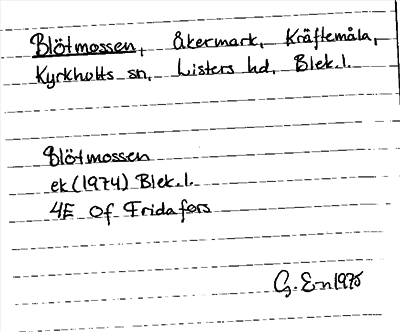 Blötmossen, åkermark, Kräftemåla,
Kyrkhults sn, Listers hd, Blek.l.
Blötmossen
ek (1974) Blek.l.
4E 0f Fridafors
G. E-n 1975